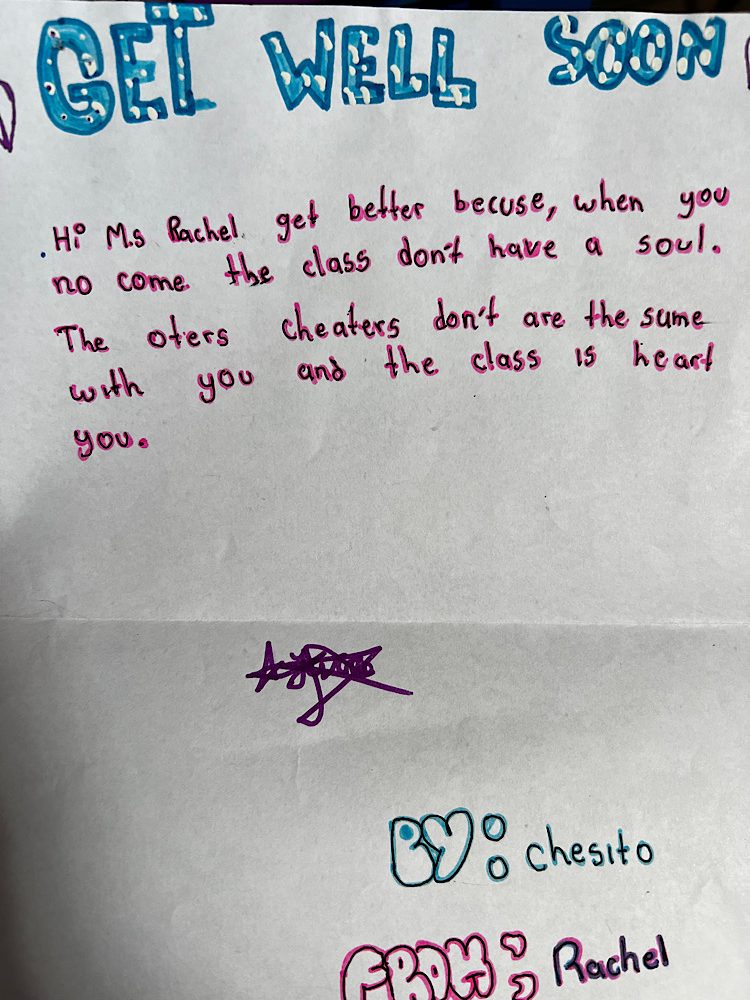 GET WELL SOON
Hi Ms Rachel get better becuse, when you
no come the class don't have a soul.
The oters cheaters don't are the same
with you and the class is heart
you.
BY: chesito
FROM: Rachel